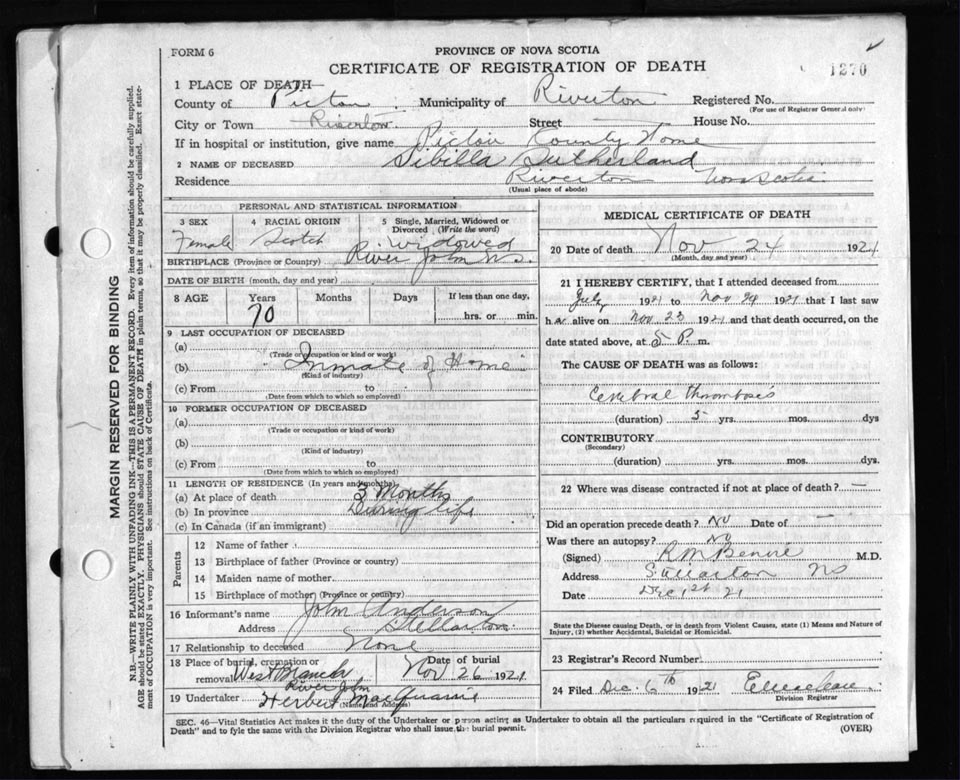 FORM 6
PROVINCE OF NOVA SCOTIA
CERTIFICATE OF REGISTRATION OF DEATH
1270
1 PLACE OF DEATH—
County of Pictou Municipality of Riverton Registered No.
(For use of Registrar General only)
City or Town Riverton Street House No.
If in hospital or institution, give name Pictou County Home
2 NAME OF DECEASED Sibilla Sutherland
Residence Riverton Nova Scotia
(Usual place of abode)
PERSONAL AND STATISTICAL INFORMATION
3 SEX 4 RACIAL ORIGIN 5 Single, Married, Widowed or Divorced (Write the word)
Female Scotch widowed
BIRTHPLACE (Province or Country) River John N.S.
DATE OF BIRTH (month, day and year)
8 AGE Years Months Days If less than one day,
70 hrs. or min.
9 LAST OCCUPATION OF DECEASED
(a)
(Trade or occupation or kind of work)
(b) Inmate of Home
(Kind of industry)
(c) From to
(Date from which to which so employed)
10 FORMER OCCUPATION OF DECEASED
(a)
(Trade or occupation or kind of work)
(b)
(Kind of industry)
(c) From to
(Date from which to which so employed)
11 LENGTH OF RESIDENCE (In years and months)
(a) At place of death 3 Months
(b) In province During life
(c) In Canada (if an immigrant)
Parents
12 Name of father
13 Birthplace of father (Province or country)
14 Maiden name of mother
15 Birthplace of mother (Province or country)
16 Informant's name John Anderson
Address Stellarton
17 Relationship to deceased None
18 Place of burial, cremation or removal West Branch River John Date of burial Nov 26 1921
19 Undertaker Herbert MacQuarrie
(Name and Address)
MEDICAL CERTIFICATE OF DEATH
20 Date of death Nov 24 1921
(Month, day and year)
21 I HEREBY CERTIFY, that I attended deceased from
July 1921 to Nov 24 1921 that I last saw
her alive on Nov 23 1921 and that death occurred, on
date stated above, at 5 P. m.
The CAUSE OF DEATH was as follows:
Cerebral thrombosis
(duration) 5 yrs. mos. dys
CONTRIBUTORY
(Secondary)
(duration) yrs. mos. dys.
22 Where was disease contracted if not at place of death? —
Did an operation precede death? No Date of —
Was there an autopsy? No
(Signed) R M Benvie M.D.
Address Stellarton NS
Date Dec 1st 21
State the Disease causing Death, or in death from Violent Causes, state (1) Means and Nature of
Injury, (2) whether Accidental, Suicidal or Homicidal.
23 Registrar's Record Number
24 Filed Dec. 6th 1921
Division Registrar
SEC. 46—Vital Statistics Act makes it the duty of the Undertaker or person acting as Undertaker to obtain all the particulars required in the "Certificate of Registration of
Death" and to fyle the same with the Division Registrar who shall issue the burial permit. (OVER)
MARGIN RESERVED FOR BINDING
N.B.—WRITE PLAINLY WITH UNFADING INK—THIS IS A PERMANENT RECORD. Every item of information should be carefully supplied.
AGE should be stated EXACTLY. PHYSICIANS should STATE CAUSE OF DEATH in plain terms, so that it may be properly classified. Exact state-
ment of OCCUPATION is very important. See instructions on back of Certificate.